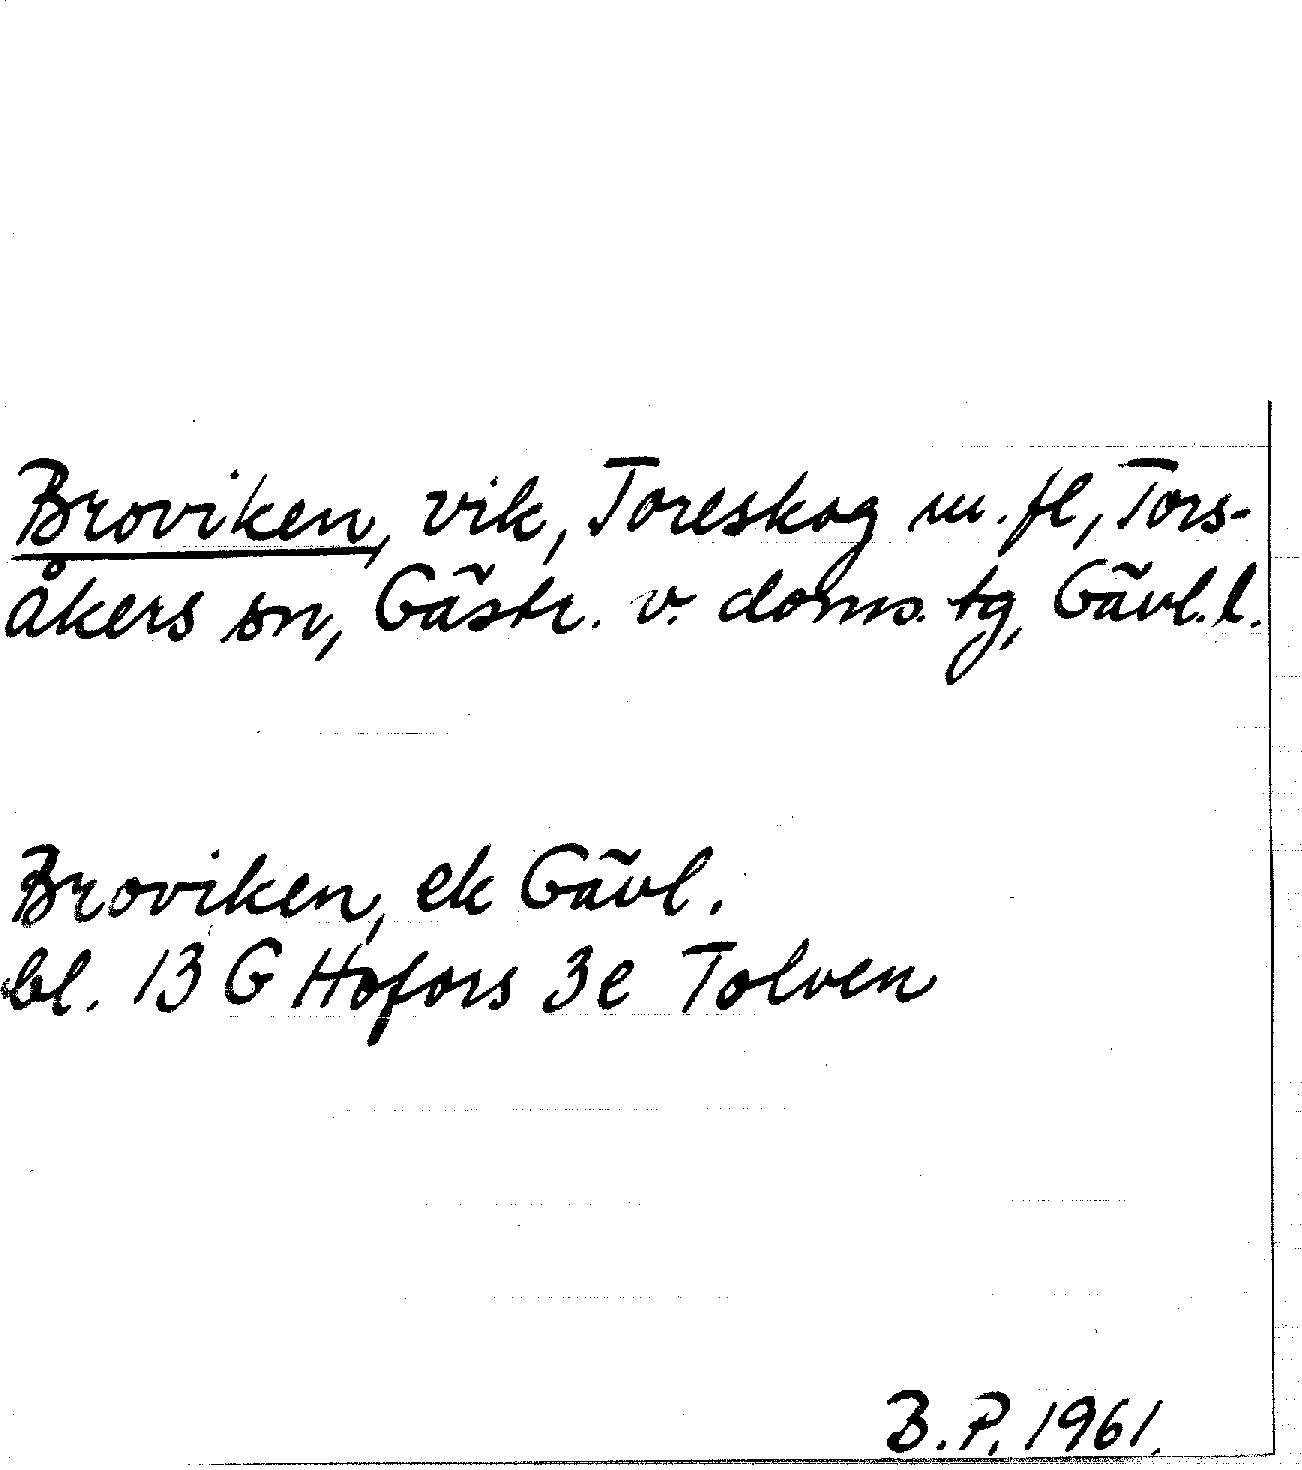 Broviken, vik, Toreskog m.fl, Tors-
åkers sn, Gästr. v. doms. tg, Gävl.l.
Broviken, ek Gävl.
bl. 13 G Hofors 3e Tolven
B.P. 1961.